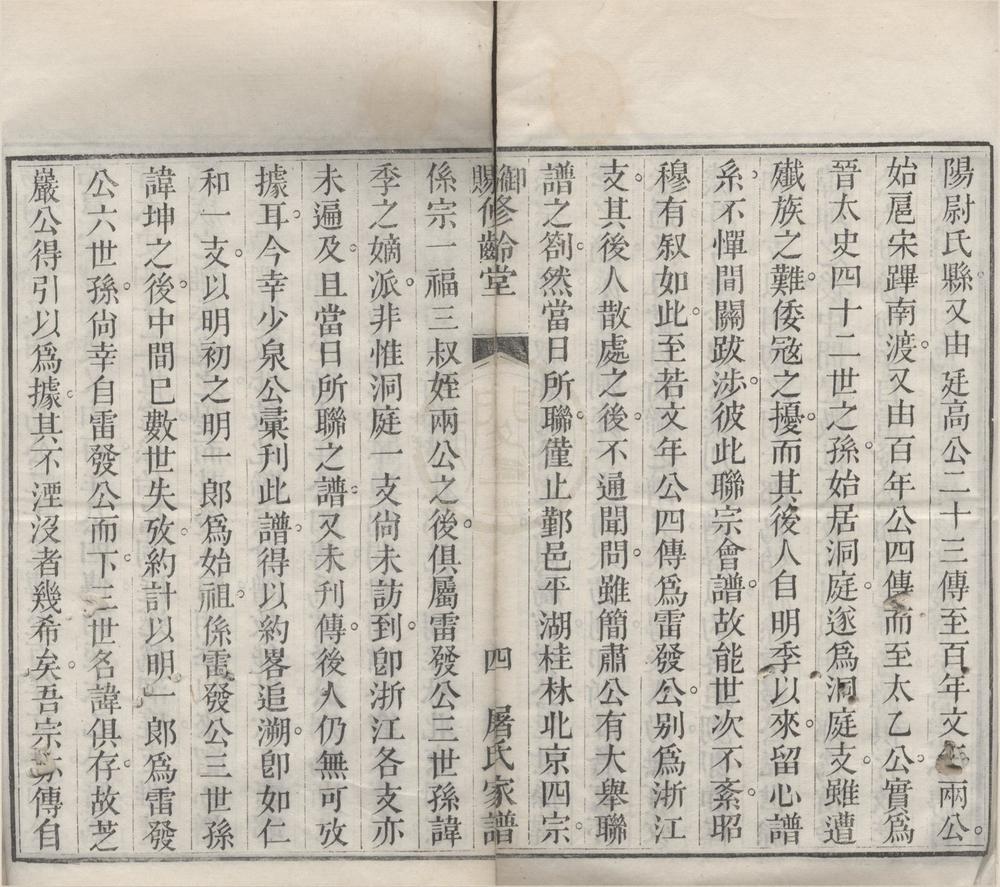 陽尉氏縣又由廷高公二十三傳至百年文年兩公。
始扈宋蹕南渡。又由百年公四傳而至太乙公。實爲
晉太史四十二世之孫。始居洞庭。遂爲洞庭支。雖遭
殲族之難。倭寇之擾。而其後人自明季以來。留心譜
系。不憚間關跋涉。彼此聯宗會譜。故能世次不紊。昭
穆有叙如此。至若文年公四傳爲雷發公。别爲浙江
支。其後人散處之後。不通聞問。雖簡肅公有大舉聯
譜之劄。然當日所聯。僅止鄞邑平湖桂林北京四宗。
御賜修齡堂 四 屠氏家譜
係宗一福三叔姪兩公之後。俱屬雷發公三世孫諱
季之嫡派。非惟洞庭一支尙未訪到。卽浙江各支亦
未遍及。且當日所聯之譜。又未刊傳。後人仍無可攷
據耳。今幸少泉公彙刊此譜。得以約畧追溯。卽如仁
和一支。以明初之明一郞爲始祖。係雷發公三世孫
諱坤之後。中間已數世失攷。約計以明一郞爲雷發
公六世孫。尙幸自雷發公而下。三世名諱俱存。故芝
巖公得引以爲據。其不湮沒者幾希矣。吾宗亦傳自